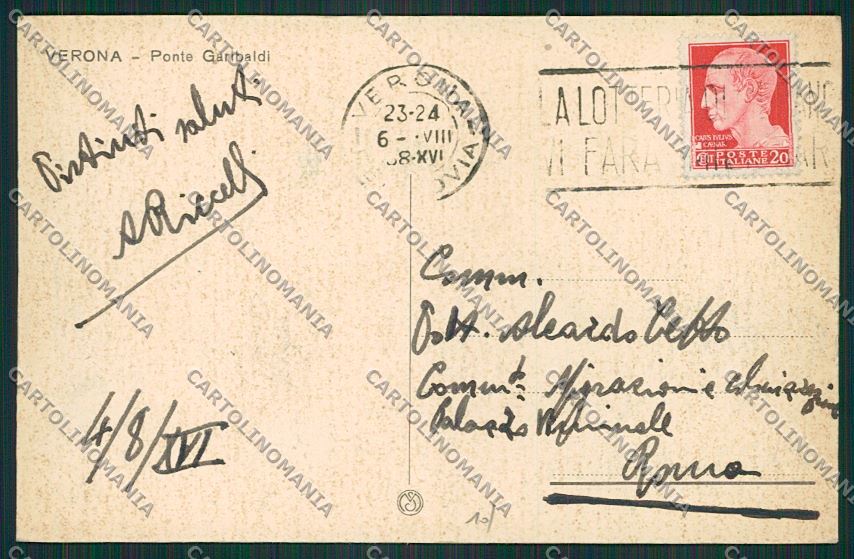 VERONA - Ponte Garibaldi
Distinti saluti
A Ricceli
4/8/XVI
VERONA
23-24
6- VIII
38-XVI
FERROVIA
LA LOTTERIA DI
VI FARÀ
CAIVS IVLIVS
CAESAR
POSTE
ITALIANE 20
Comm.
Dott. Aleardo
Comm.to Migrazioni e
Palazzo Viminale
Roma
10/
CARTOLINOMANIA